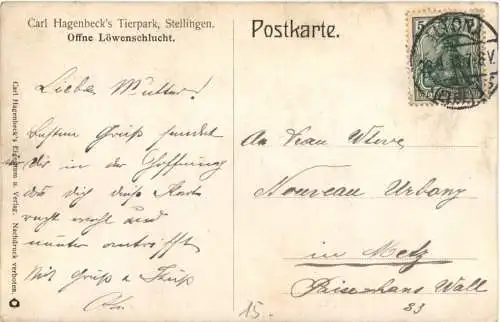 Carl Hagenbeck's Tierpark, Stellingen.
Offne Löwenschlucht.
Postkarte.
5
Carl Hagenbeck's Eigentum u. Verlag. Nachdruck verboten.
Liebe Mutter!
Besten Gruß sendet
Dir in der Hoffnung
das dich diese Karte
recht wohl und
munter antrifft
Mit Gruß u Kuß
An Frau Wtwe
Nouveau Urbany
in Metz
Wall
33
15.